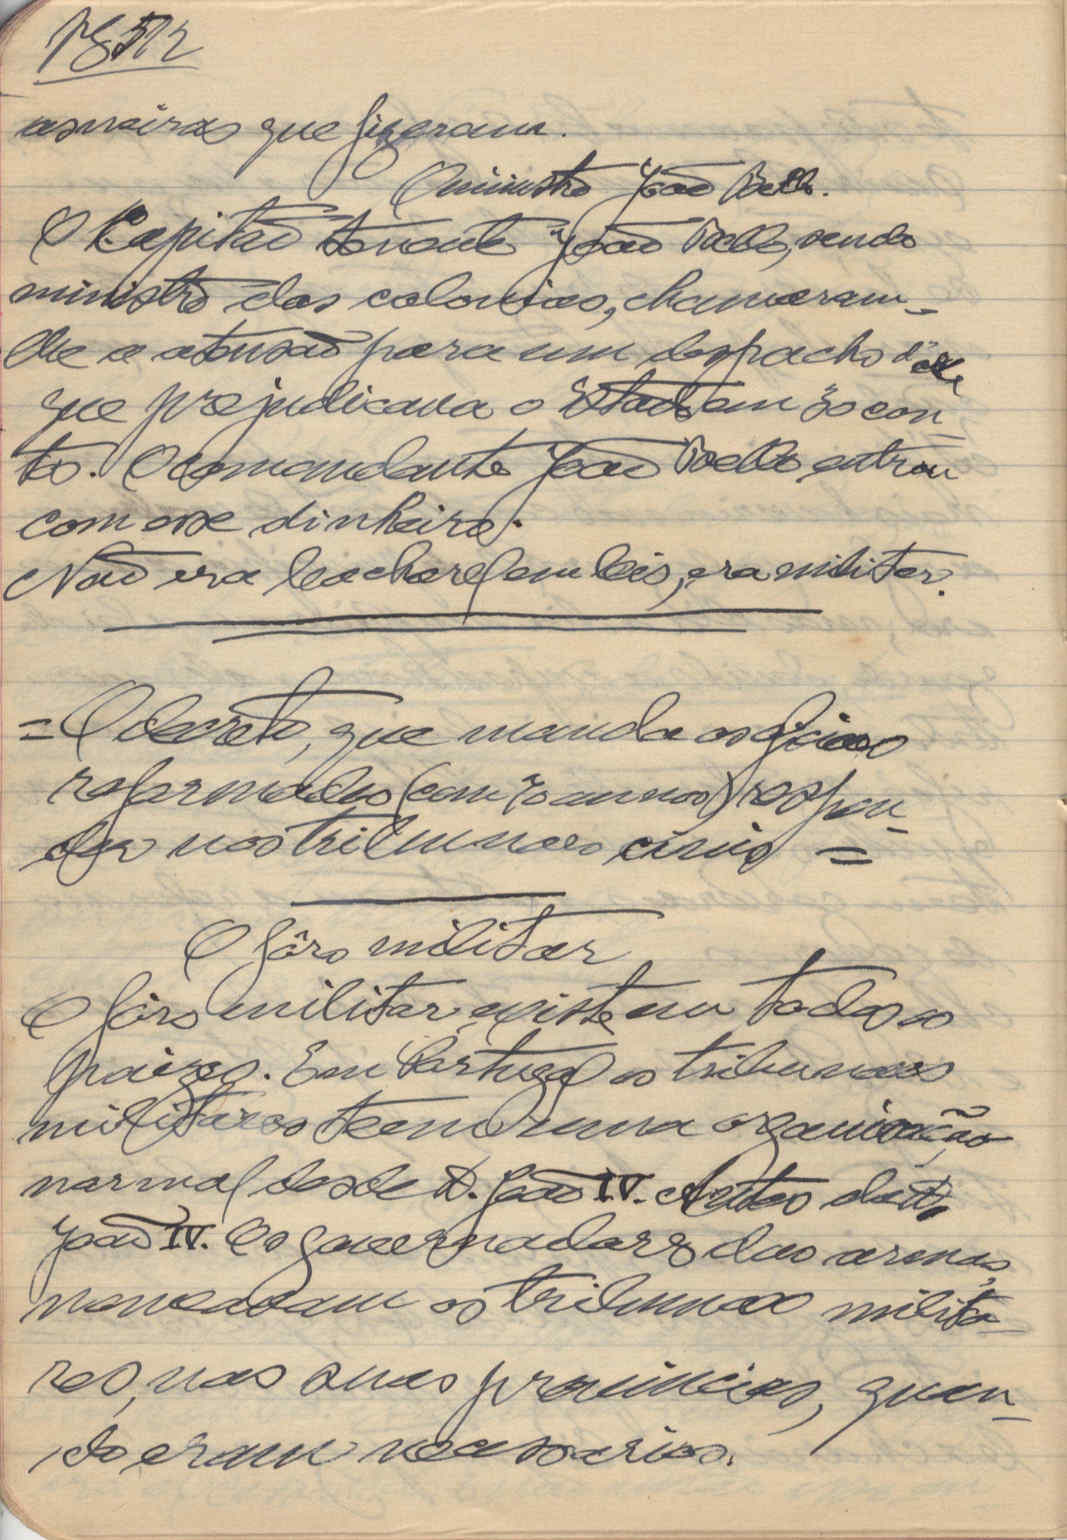 pg 572
asneiras que fizeram.
O ministro João Bello.
O Capitão tenente João Bello, sendo
ministro das colonias, chamaram-
lhe a atensão para um despacho d'ele
que prejudicava o Estado em 30 con-
tos. O comandante João Bello entrou
com esse dinheiro.
Não era bacharel em leis, era militar.
= O decreto, que manda os oficiaes
reformados (com 70 annos) respon-
der nos tribunaes civis =
O fôro militar
O fôro militar, existe em todos os
paizes. Em Portugal os tribunaes
militares teem uma organisação
normal desde D. João IV. Antes de D.
João IV. Os governadores das armas,
nomeavam os tribunaes milita-
res, nas suas provincias, quan-
do eram necessarios.